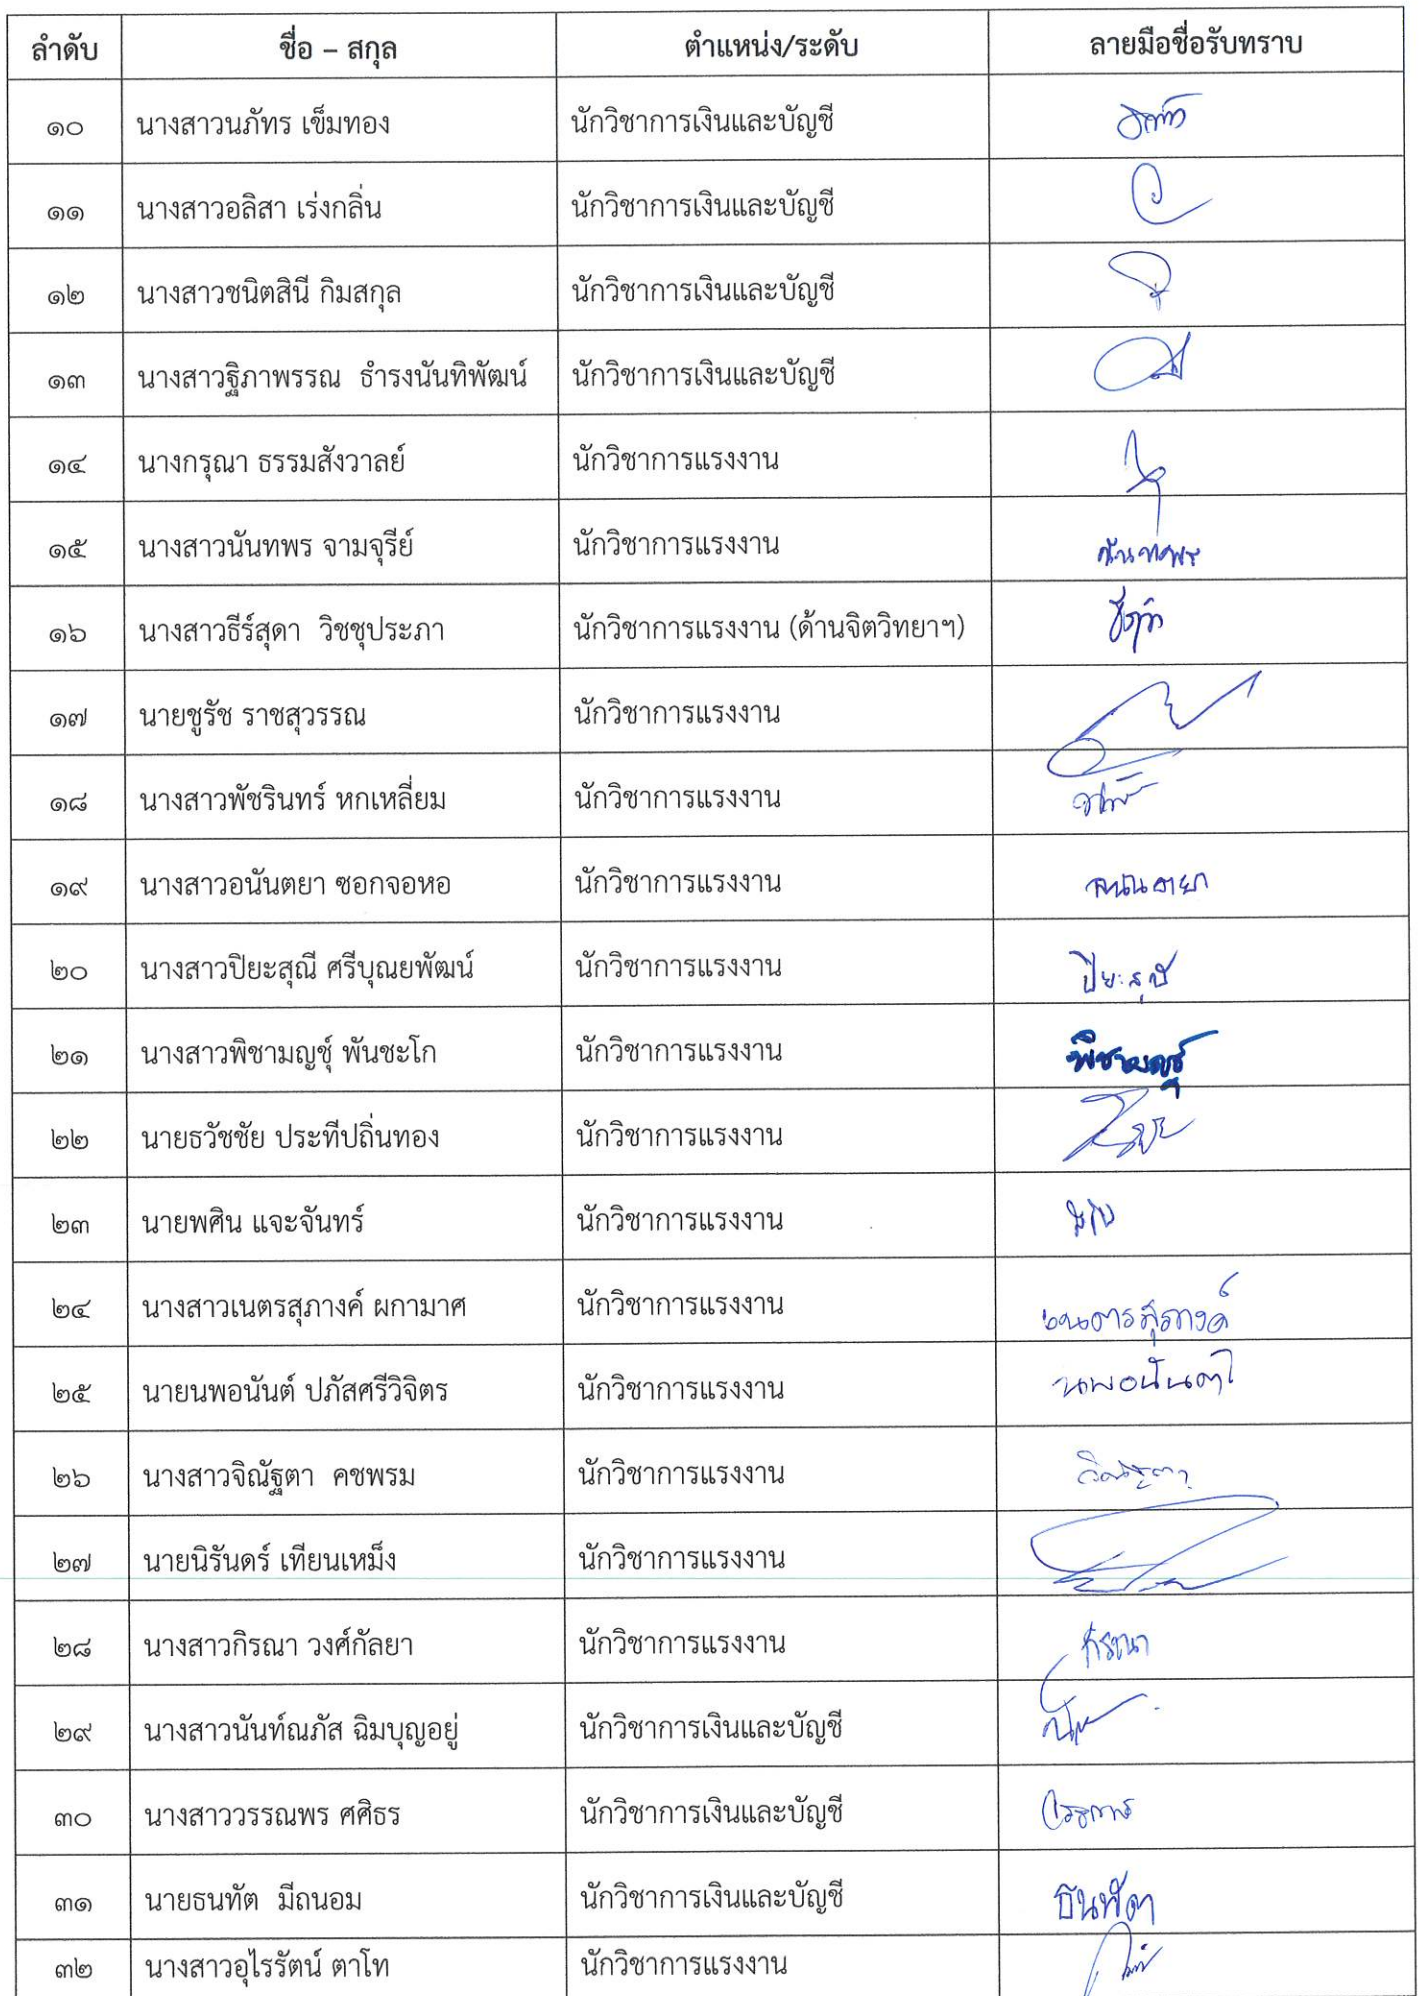 ลำดับ ชื่อ – สกุล ตำแหน่ง/ระดับ ลายมือชื่อรับทราบ
๑๐ นางสาวนภัทร เข็มทอง นักวิชาการเงินและบัญชี
๑๑ นางสาวอลิสา เร่งกลิ่น นักวิชาการเงินและบัญชี
๑๒ นางสาวชนิตสินี กิมสกุล นักวิชาการเงินและบัญชี
๑๓ นางสาวฐิภาพรรณ ธำรงนันทิพัฒน์ นักวิชาการเงินและบัญชี
๑๔ นางกรุณา ธรรมสังวาลย์ นักวิชาการแรงงาน
๑๕ นางสาวนันทพร จามจุรีย์ นักวิชาการแรงงาน นันทพร
๑๖ นางสาวธีร์สุดา วิชชุประภา นักวิชาการแรงงาน (ด้านจิตวิทยาฯ)
๑๗ นายชูรัช ราชสุวรรณ นักวิชาการแรงงาน
๑๘ นางสาวพัชรินทร์ หกเหลี่ยม นักวิชาการแรงงาน
๑๙ นางสาวอนันตยา ซอกจอหอ นักวิชาการแรงงาน อนันตยา
๒๐ นางสาวปิยะสุณี ศรีบุณยพัฒน์ นักวิชาการแรงงาน ปิยะสุณี
๒๑ นางสาวพิชามญชุ์ พันชะโก นักวิชาการแรงงาน พิชามญชุ์
๒๒ นายธวัชชัย ประทีปถิ่นทอง นักวิชาการแรงงาน
๒๓ นายพศิน แจะจันทร์ นักวิชาการแรงงาน
๒๔ นางสาวเนตรสุภางค์ ผกามาศ นักวิชาการแรงงาน เนตรสุภางค์
๒๕ นายนพอนันต์ ปภัสศรีวิจิตร นักวิชาการแรงงาน นพอนันต์
๒๖ นางสาวจิณัฐตา คชพรม นักวิชาการแรงงาน จิณัฐตา
๒๗ นายนิรันดร์ เทียนเหม็ง นักวิชาการแรงงาน
๒๘ นางสาวกิรณา วงศ์กัลยา นักวิชาการแรงงาน กิรณา
๒๙ นางสาวนันท์ณภัส ฉิมบุญอยู่ นักวิชาการเงินและบัญชี
๓๐ นางสาววรรณพร ศศิธร นักวิชาการเงินและบัญชี วรรณพร
๓๑ นายธนทัต มีถนอม นักวิชาการเงินและบัญชี ธนทัต
๓๒ นางสาวอุไรรัตน์ ตาโท นักวิชาการแรงงาน